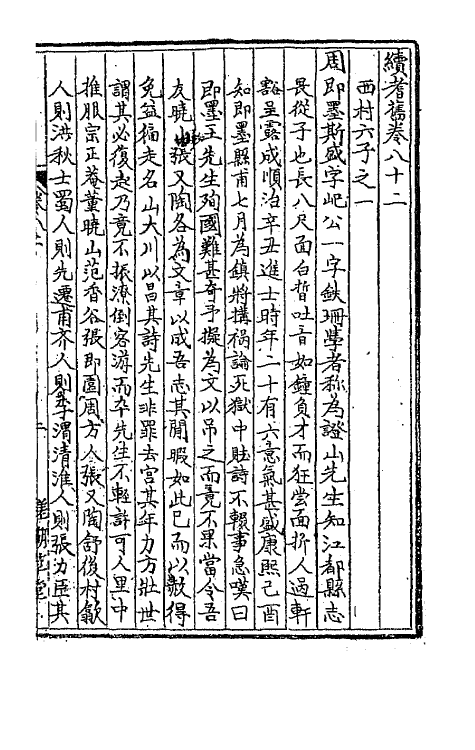 續耆舊卷八十二
西村六子之一
周即墨斯盛字屺公一字鉄珊學者称為證山先生知江都縣志
畏從子也長八尺面白晳吐音如鍾負才而狂嘗面折人過軒
豁呈露成順治辛丑進士時年二十有六意氣甚盛康熙己酉
知即墨縣甫七月為鎮將搆禍論死獄中賦詩不輟事急嘆曰
即墨王先生殉國難甚奇予擬為文以弔之而竟不果當令吾
友曉山張又陶各為文章以成吾志其閒暇如此已而以赦得
免益徧走名山大川以昌其詩先生非罪去官其年力方壯世
謂其必復起乃竟不振潦倒客游而卒先生不輕許可人里中
推服宗正菴董曉山范香谷張即園周方人張又陶舒後村歙
人則洪秋士蜀人則先遷甫齐人則李渭清淮人則張力臣其